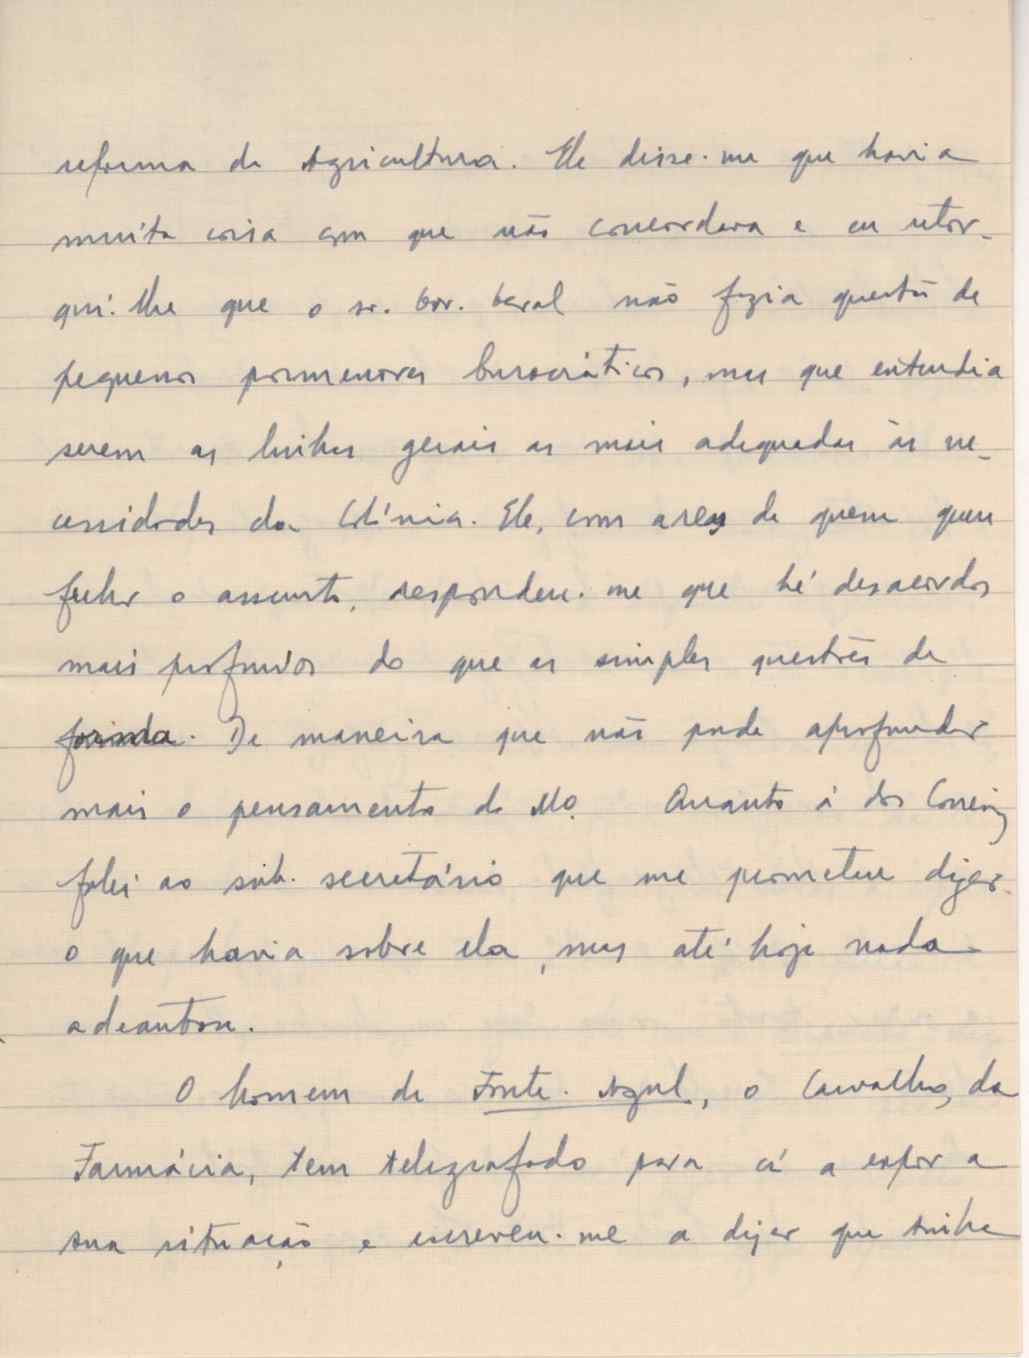 reforma da Agricultura. Ele disse-me que havia
muita coisa com que não concordara e eu retor-
qui-lhe que o sr. Gov. Geral não fazia questão de
pequenos pormenores burocráticos, mas que entendia
serem as linhas gerais as mais adequadas às ne-
cessidades da Colónia. Ele, com ares de quem quer
fechar o assunto, respondeu-me que há desacordos
mais profundos do que as simples questões de
De maneira que não pude aprofundar
mais o pensamento do Mo. Quanto à dos Correios
falei ao sub-secretário que me prometeu dizer
o que havia sobre ela, mas até hoje nada
adeantou.
O homem de Fonte-Azul, o Carvalho, da
Farmácia, tem telegrafado para cá a expor a
sua situação e escreveu-me a dizer que tinha